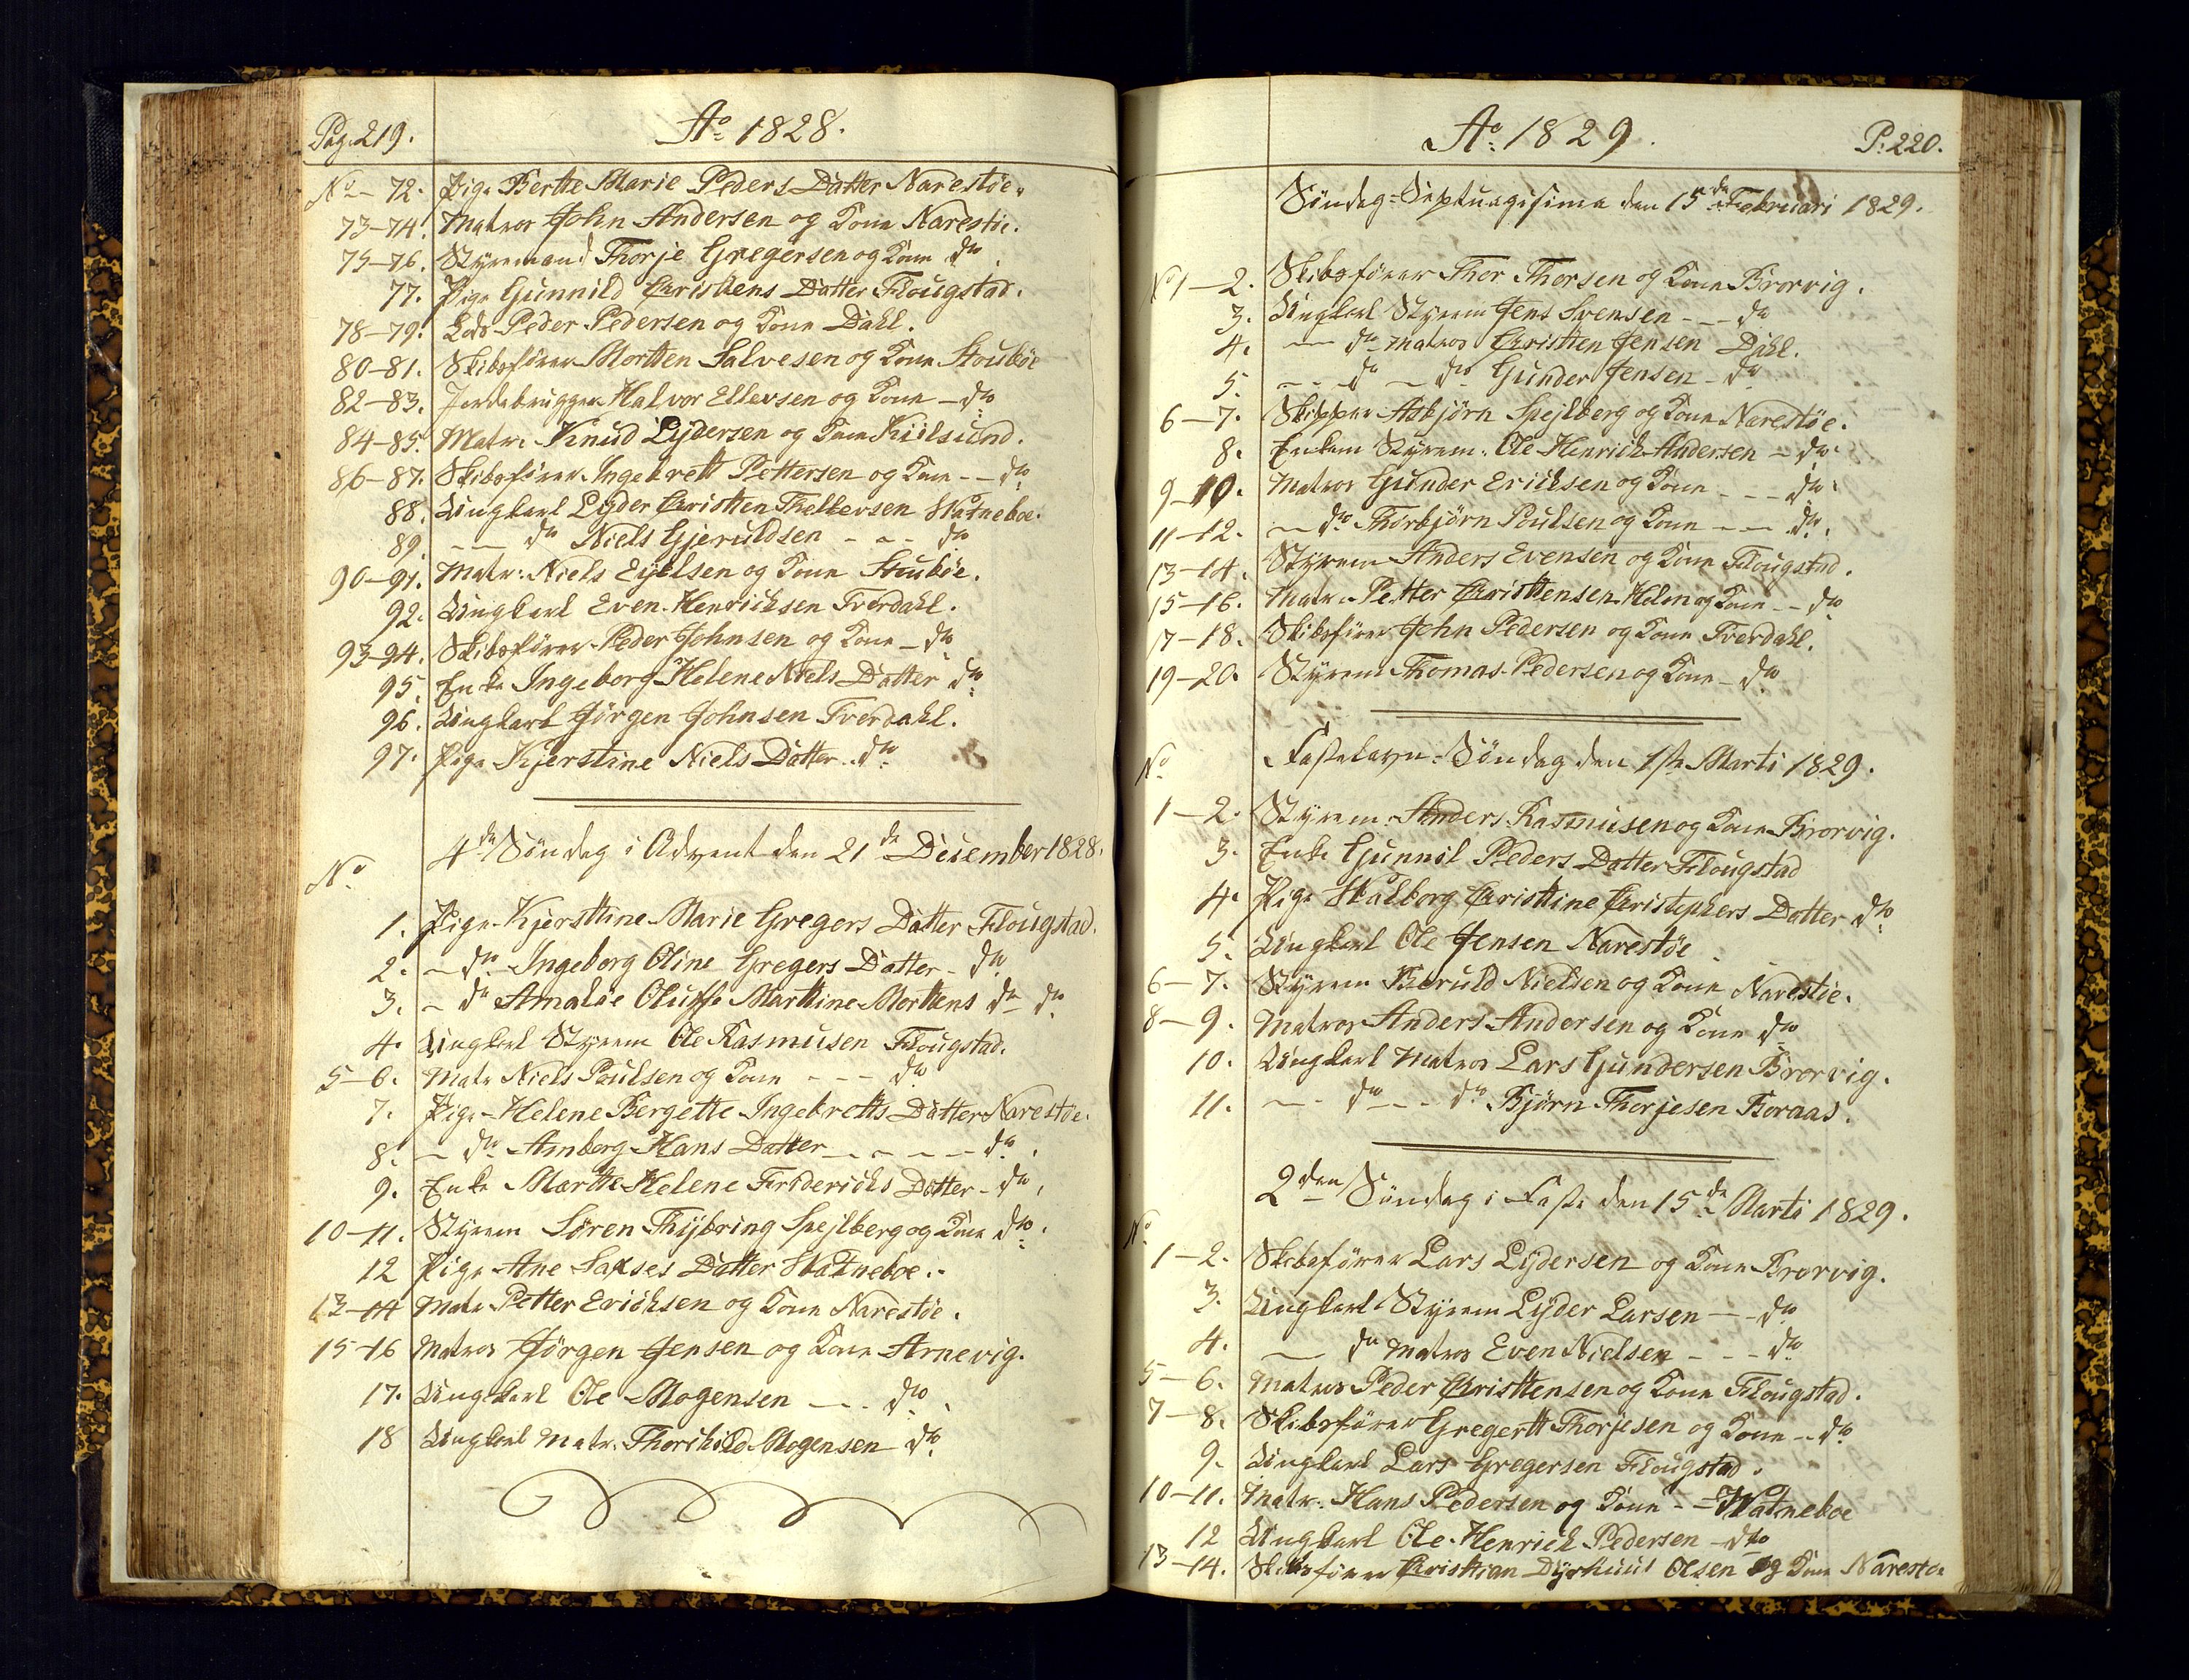 Pag. 219.
Ao 1828.
No 72. Pige Berthe Marie Peders Datter Narestöe.
73-74. Matros John Andersen og Kone Narestöe.
75-76. Styrmand Thorje Gregersen og Kone do
77. Pige Gunnild Christens Datter Flougstad.
78-79. Lods Peder Pedersen og Kone Dahl.
80-81. Skibsförer Mortten Salvesen og Kone Stouböe
82-83. Jordebrugger Halvor Ellevsen og Kone - do
84-85. Matr. Knud Lydersen og Kone Kiilsund.
86-87. Skibsförer Ingebrett Pettersen og Kone - - do
88. Ungkarl Lyder Christen Thellevsen Watneboe.
89. - - do Niels Gjeruldsen - - - do
90-91. Matr: Niels Eyelsen og Kone Stouböe.
92. Ungkarl Even Henrichsen Tverdahl.
93-94. Skibsförer Peder Johnsen og Kone - do
95. Enke Ingeborg Helene Niels Datter do
96. Ungkarl Jörgen Johnsen Tverdahl.
97. Pige Kjerstine Niels Datter do
4de Söndag i Advent den 21de December 1828.
No
1. Pige Kjersttine Marie Gregers Datter Flougstad.
2. - do Ingeborg Oline Gregers Datter - do
3. - do Amalie Oluffe Marthine Mortens do do
4. Ungkarl Styrm Ole Rasmusen Flougstad.
5-6. Matr Niels Poulsen og Kone - - - do
7. Pige Helene Bergette Ingebretts Datter Narestöe.
8. - do Amborg Hans Datter - - - - - do
9. Enke Marthe Helene Friderichs Datter - do
10-11. Styrm Sören Thybring Spejlberg og Kone do
12 Pige Ane Saxses Datter Watneboe.
13-14 Matr Petter Erichsen og Kone Narestöe.
15-16 Matros Jörgen Jensen og Kone Arnevig.
17. Ungkarl Ole Mogensen - - - do
18 Ungkarl Matr. Thorkild Mogensen do
Ao 1829.
P: 220.
Söndag Septuagisima den 15de Februari 1829.
No 1-2. Skibsförer Thor Thorsen og Kone Brorvig.
3. Ungkarl Styrm Jens Svensen - - - do
4. - do Matros Christen Jensen Dahl.
5. - - do - do Gunder Jensen - do
6-7. Skipper Asbjörn Spejlberg og Kone Narestöe.
8. Enkem Styrm. Ole Henrich Andersen - do
9-10. Matros Gunder Erichsen og Kone - - - do
11-12. - do Thorbjörn Poulsen og Kone - - - do
13-14. Styrm Anders Evensen og Kone Flougstad.
15-16. Matr. Petter Christensen Holm og Kone - - do
17-18. Skibsförer John Pedersen og Kone Tverdahl.
19-20. Styrm Thomas Pedersen og Kone - do
No
Fastelavn-Söndag den 1ste Marti 1829.
1-2. Styrm. Anders Rasmusen og Kone Brorvig.
3. Enke Gunnil Peders Datter Flougstad
4. Pige Walborg Christtine Christephers Datter do
5. Ungkarl Ole Jensen Narestöe
6-7. Styrm Beruld Nielsen og Kone Narestöe.
8-9. Matros Anders Andersen og Kone do
10. Ungkarl Matros Lars Gundersen Brorvig.
11. - - do - - do Björn Thorjesen Boraas.
2den Söndag i Faste den 15de Marti 1829.
No
1-2. Skibsförer Lars Lydersen og Kone Brorvig.
3. Ungkarl Styrm Lyder Larsen - - do
4. - do Matros Even Nielsen - - - do
5-6. Matros Peder Christtensen og Kone Flougstad.
7-8. Skibsförer Gregertt Thorjesen og Kone - - do
9. Ungkarl Lars Gregersen Flougstad.
10-11. Matr. Hans Pedersen og Kone - - Watneboe
12 Ungkarl Ole Henrich Pedersen - do
13-14. Skibsförer Christtian Dyrhuus Olsen og Kone Narestöe